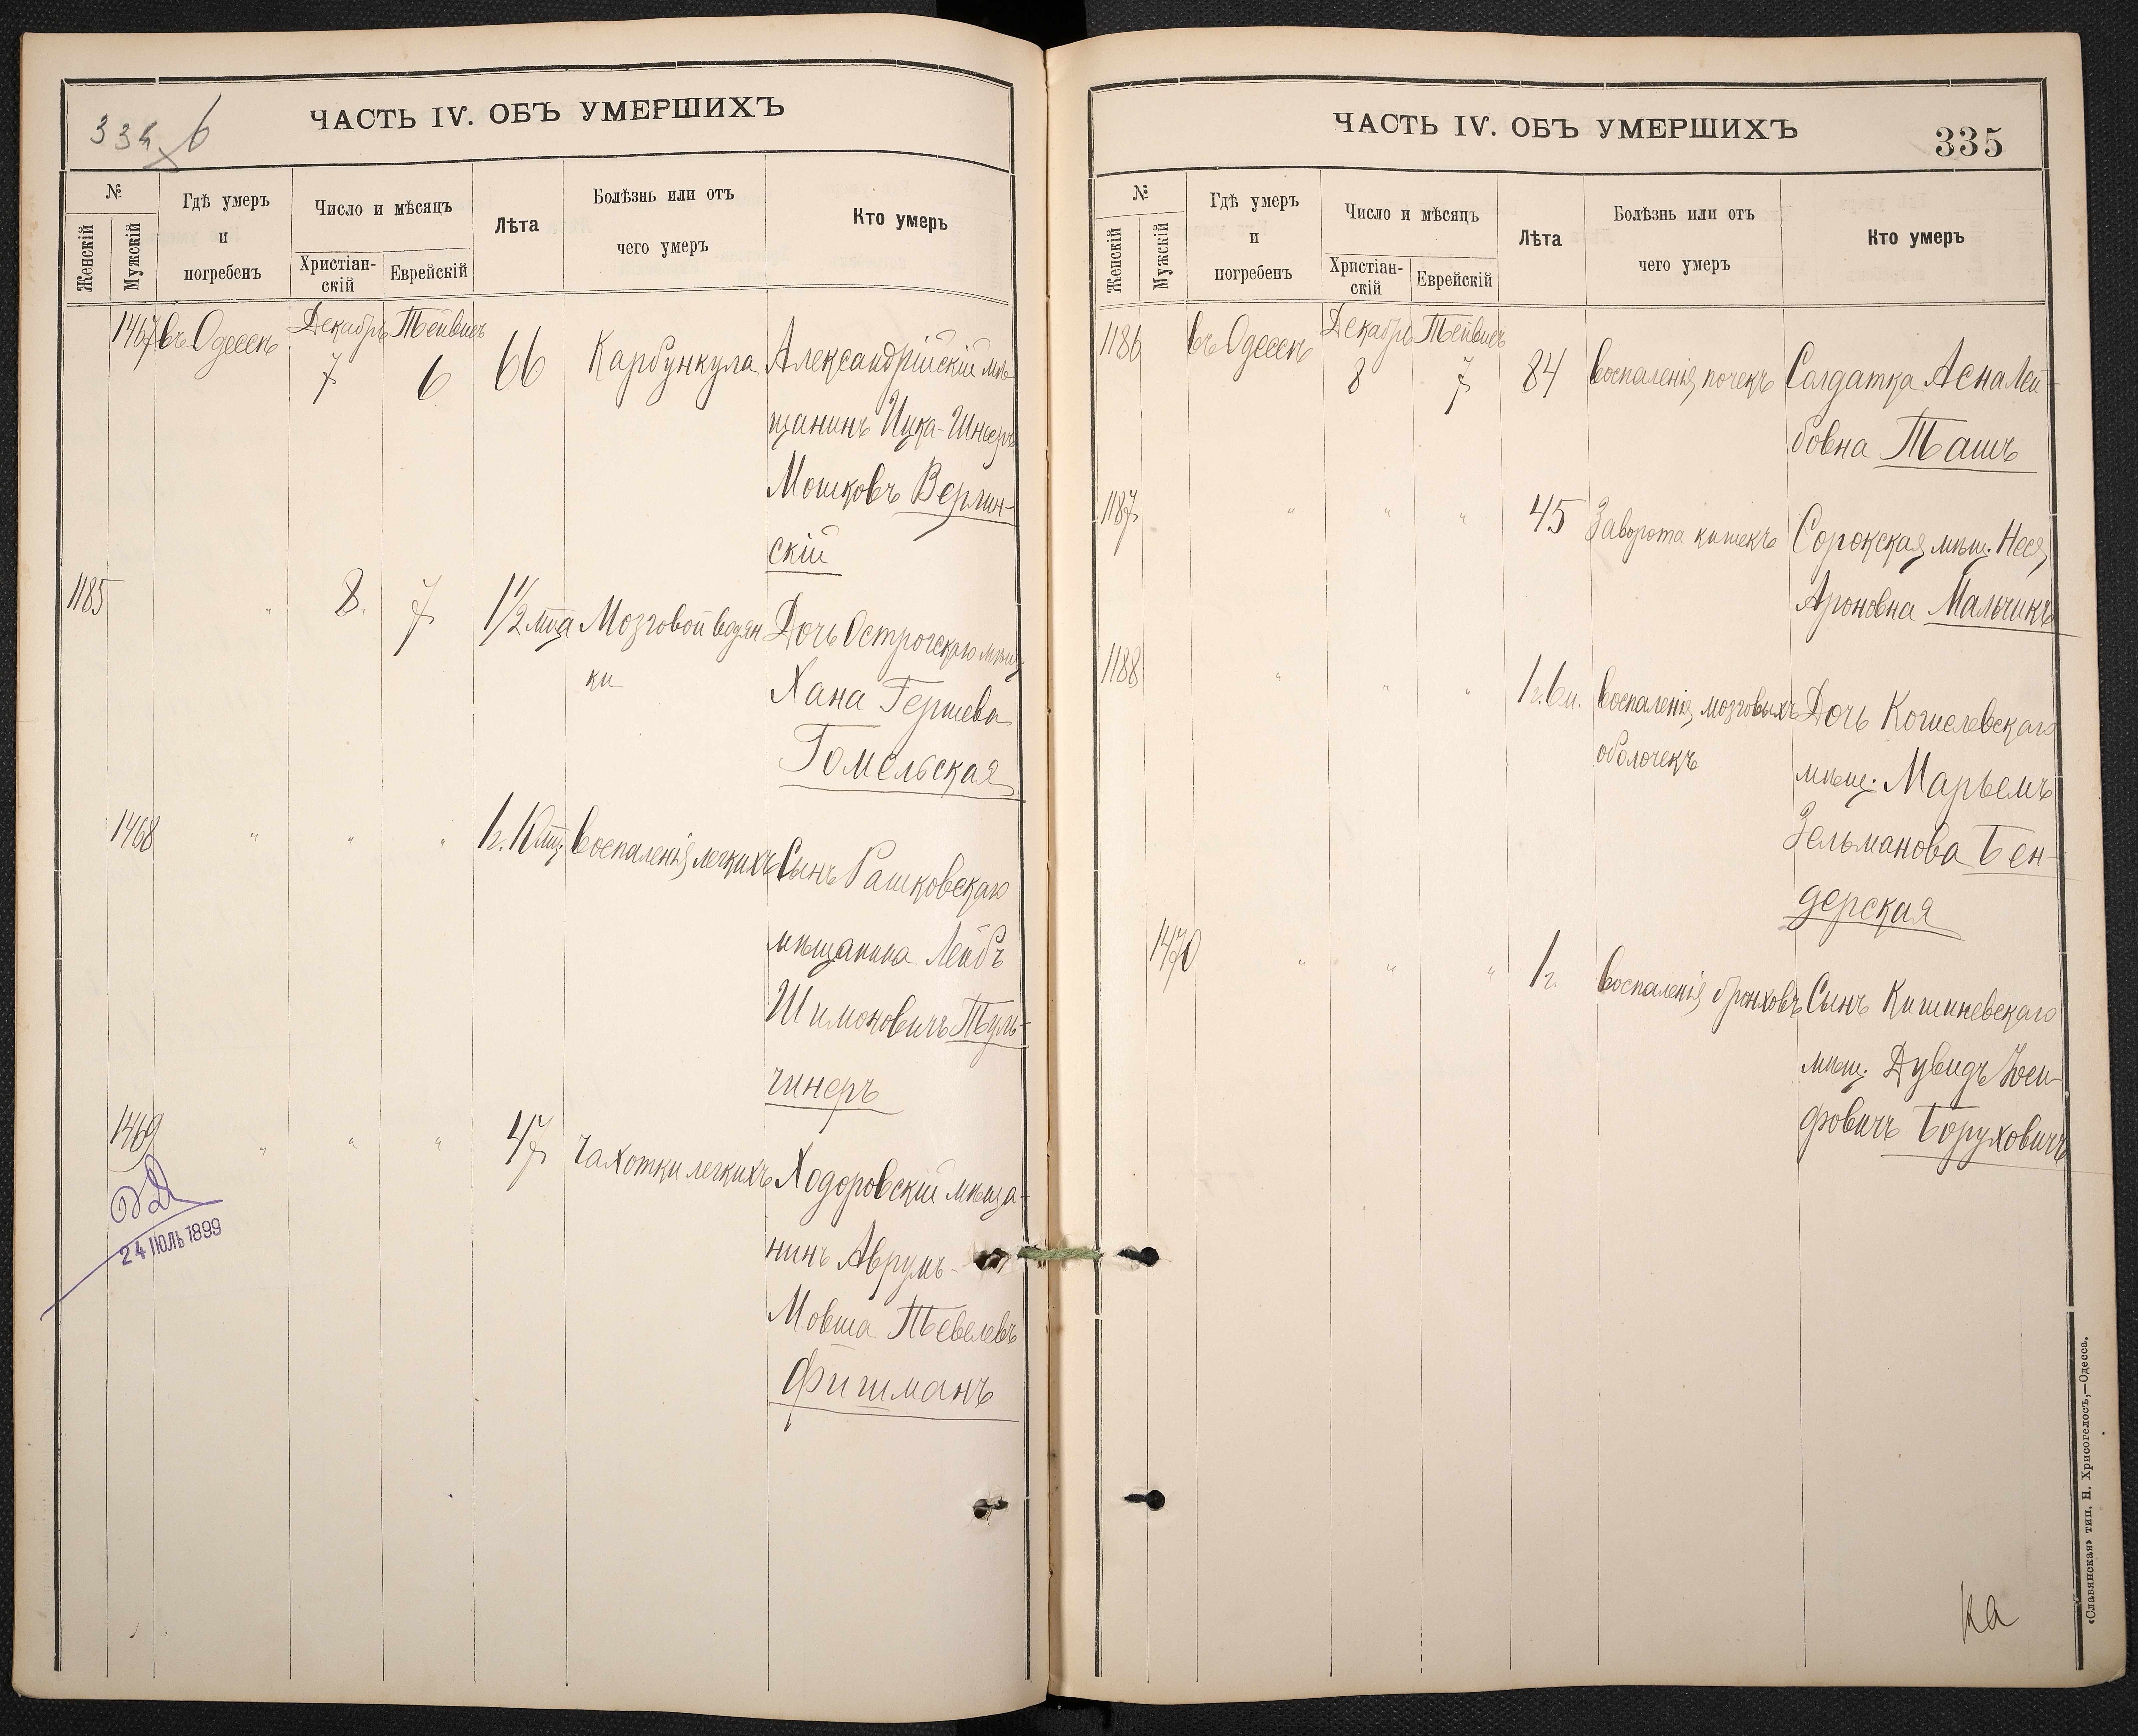 334 б
ЧАСТЬ IV. ОБЪ УМЕРШИХЪ
№
Женскій
Мужскій
Гдѣ умеръ
и
погребенъ
Число и мѣсяцъ
Христіан-
скій
Еврейскій
Лѣта
Болѣзнь или отъ
чего умеръ
Кто умеръ
1467 въ Одессѣ Декабрь 7 Тейвисъ 6 66 Карбункула Александрійскій мѣ-
щанинъ Ицка-Шнееръ
Мошковъ Верлин-
скій
1185 " 8 7 1 1/2 мца Мозговой водян
ки
Дочь Острогскаго мѣщ.
Хана Гершева
Гомельская
1468 " " " 1 г. 10 мц. Воспаленія легкихъ Сынъ Рашковскаго
мѣщанина Лейбъ
Шимоновичъ Туль-
чинеръ
1469 " " " 47 Чахотки легкихъ Ходоровскій мѣща-
нинъ Аврумъ-
Мовша Тевелевъ
Фишманъ
24 ІЮЛЬ 1899
ЧАСТЬ IV. ОБЪ УМЕРШИХЪ
335
№
Женскій
Мужскій
Гдѣ умеръ
и
погребенъ
Число и мѣсяцъ
Христіан-
скій
Еврейскій
Лѣта
Болѣзнь или отъ
чего умеръ
Кто умеръ
1186 въ Одессѣ Декабрь 8 Тейвисъ 7 84 Воспаленія почекъ Солдатка Асна Лей-
бовна Ташъ
1187 " " " 45 Заворота кишекъ Сорокская мѣщ. Неся
Ароновна Мальчикъ
1188 " " " 1 г. 6 м. Воспаленія мозговыхъ
оболочекъ
Дочь Кошелевскаго
мѣщ. Марьемъ
Зельманова Бен-
дерская
1470 " " " 1 г. Воспаленія бронховъ Сынъ Кишиневскаго
мѣщ. Дувидъ Іоси-
фовичъ Боруховичъ
на
«Славянская» тип. Н. Хрисогелосъ,—Одесса.